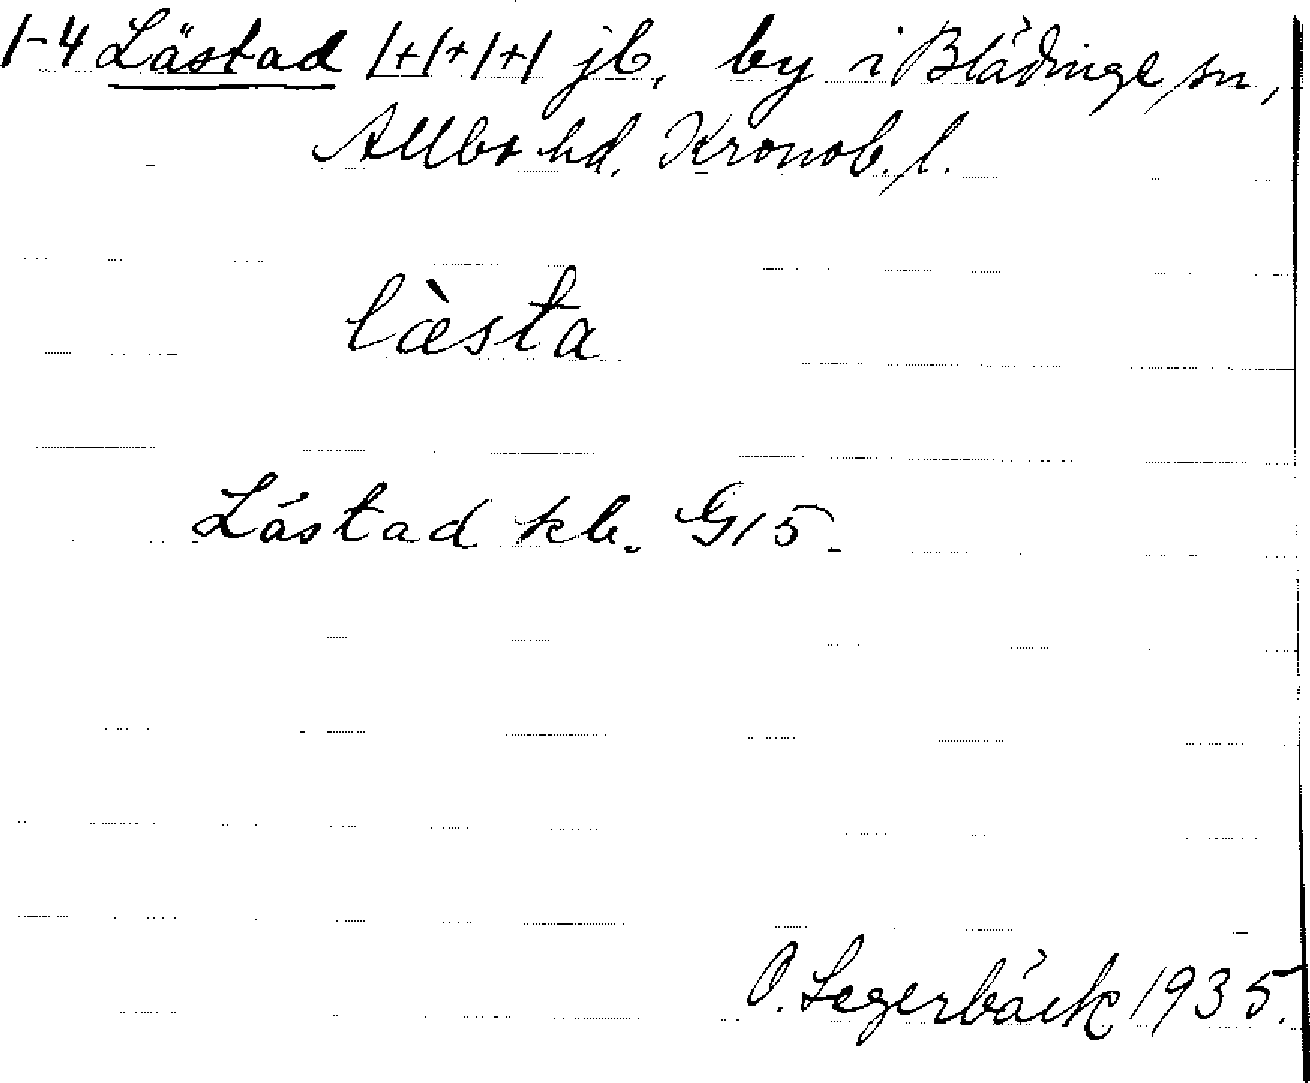 1-4 Lästad 1+1+1+1 jb. by i Blädinge sn,
Allbo hd. Kronob. l.
læ̀sta
Lästad kb. G15.
O. Segerbäck 1935.